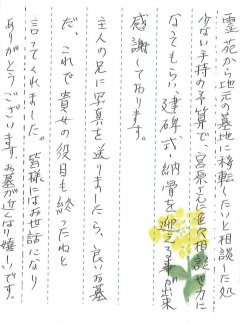 霊苑から地元の墓地に移転したいと相談した処
少ない手持の予算で、宮原さんに色々相談せ方に
なってもらい、建碑式・納骨を迎える事が出来
感謝しております。
主人の兄に写真を送りましたら、良いお墓
だ、これで貴女の役目も終ったねと
言ってくれました。皆様にはお世話になり
ありがとうございます。お墓が近くなり嬉しいです。